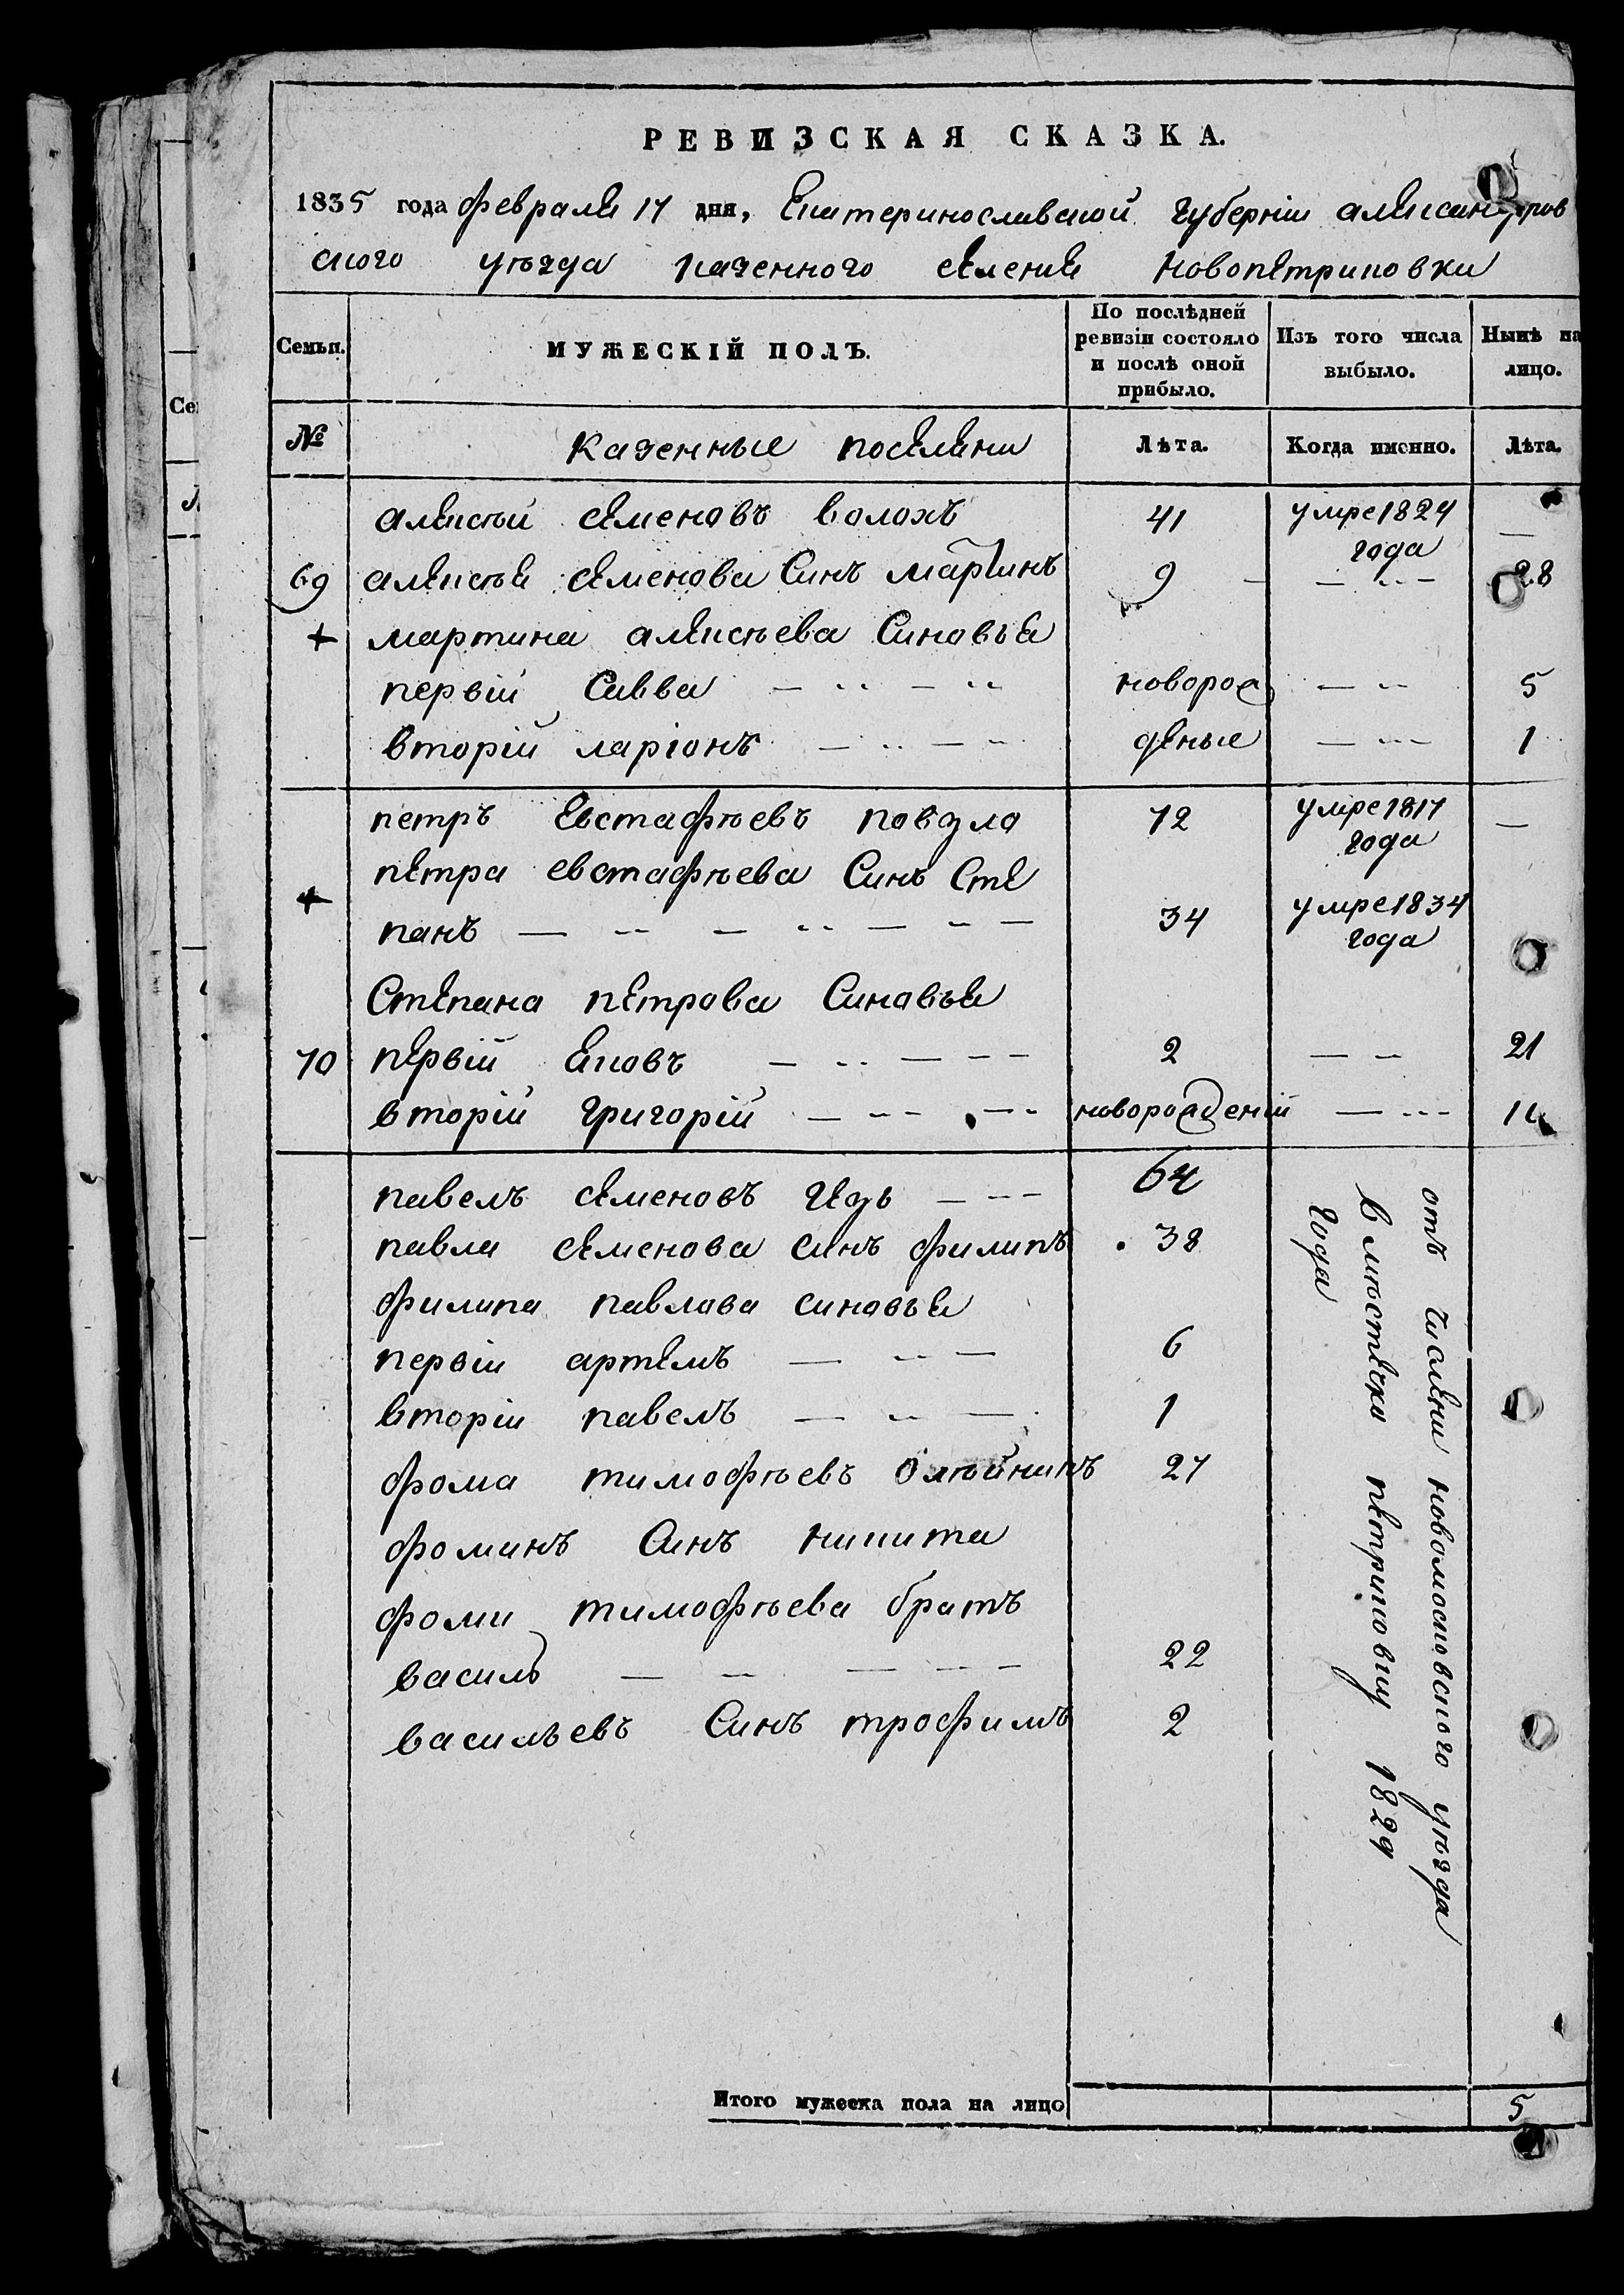 РЕВИЗСКАЯ СКАЗКА.
1835 года февраля 17 дня, Екатеринославской губерніи александров
ского уѣзда казенного селения Новопетриковки
Семьи. МУЖЕСКІЙ ПОЛЪ. По послѣдней ревизіи состояло и послѣ оной прибыло. Изъ того числа выбыло. Нынѣ на лицо.
№ Казенные поселяни Лѣта. Когда именно. Лѣта.
алексѣй семеновъ волохъ 41 умре 1824 года —
69 алексѣя семенова Синъ мартинъ 9 — — 28
+ мартина алексѣева Синовья
первій Савва — новорож — 5
вторій ларіонъ — деные — 1
петръ Евстафѣевъ 72 умре 1817 года —
петра евстафѣева Синъ Сте
+ панъ — 34 умре 1834 года
Степана петрова Синовья
70 первій Яковъ — 2 — 21
вторій григорій — новорожденій —
павелъ семеновъ — 64
павла семенова синъ филипъ 38
филипа павлова синовья
первій артемъ — 6
вторій павелъ — 1
фома тимофѣевъ Олѣйникъ 27
фоминъ Синъ никита
фоми тимофѣева братъ
василь — 22
васильевъ Синъ трофимъ 2
отъ новомосковского уѣзда
в мѣстечко петриковку 1829
года
Итого мужеска пола на лицо 5